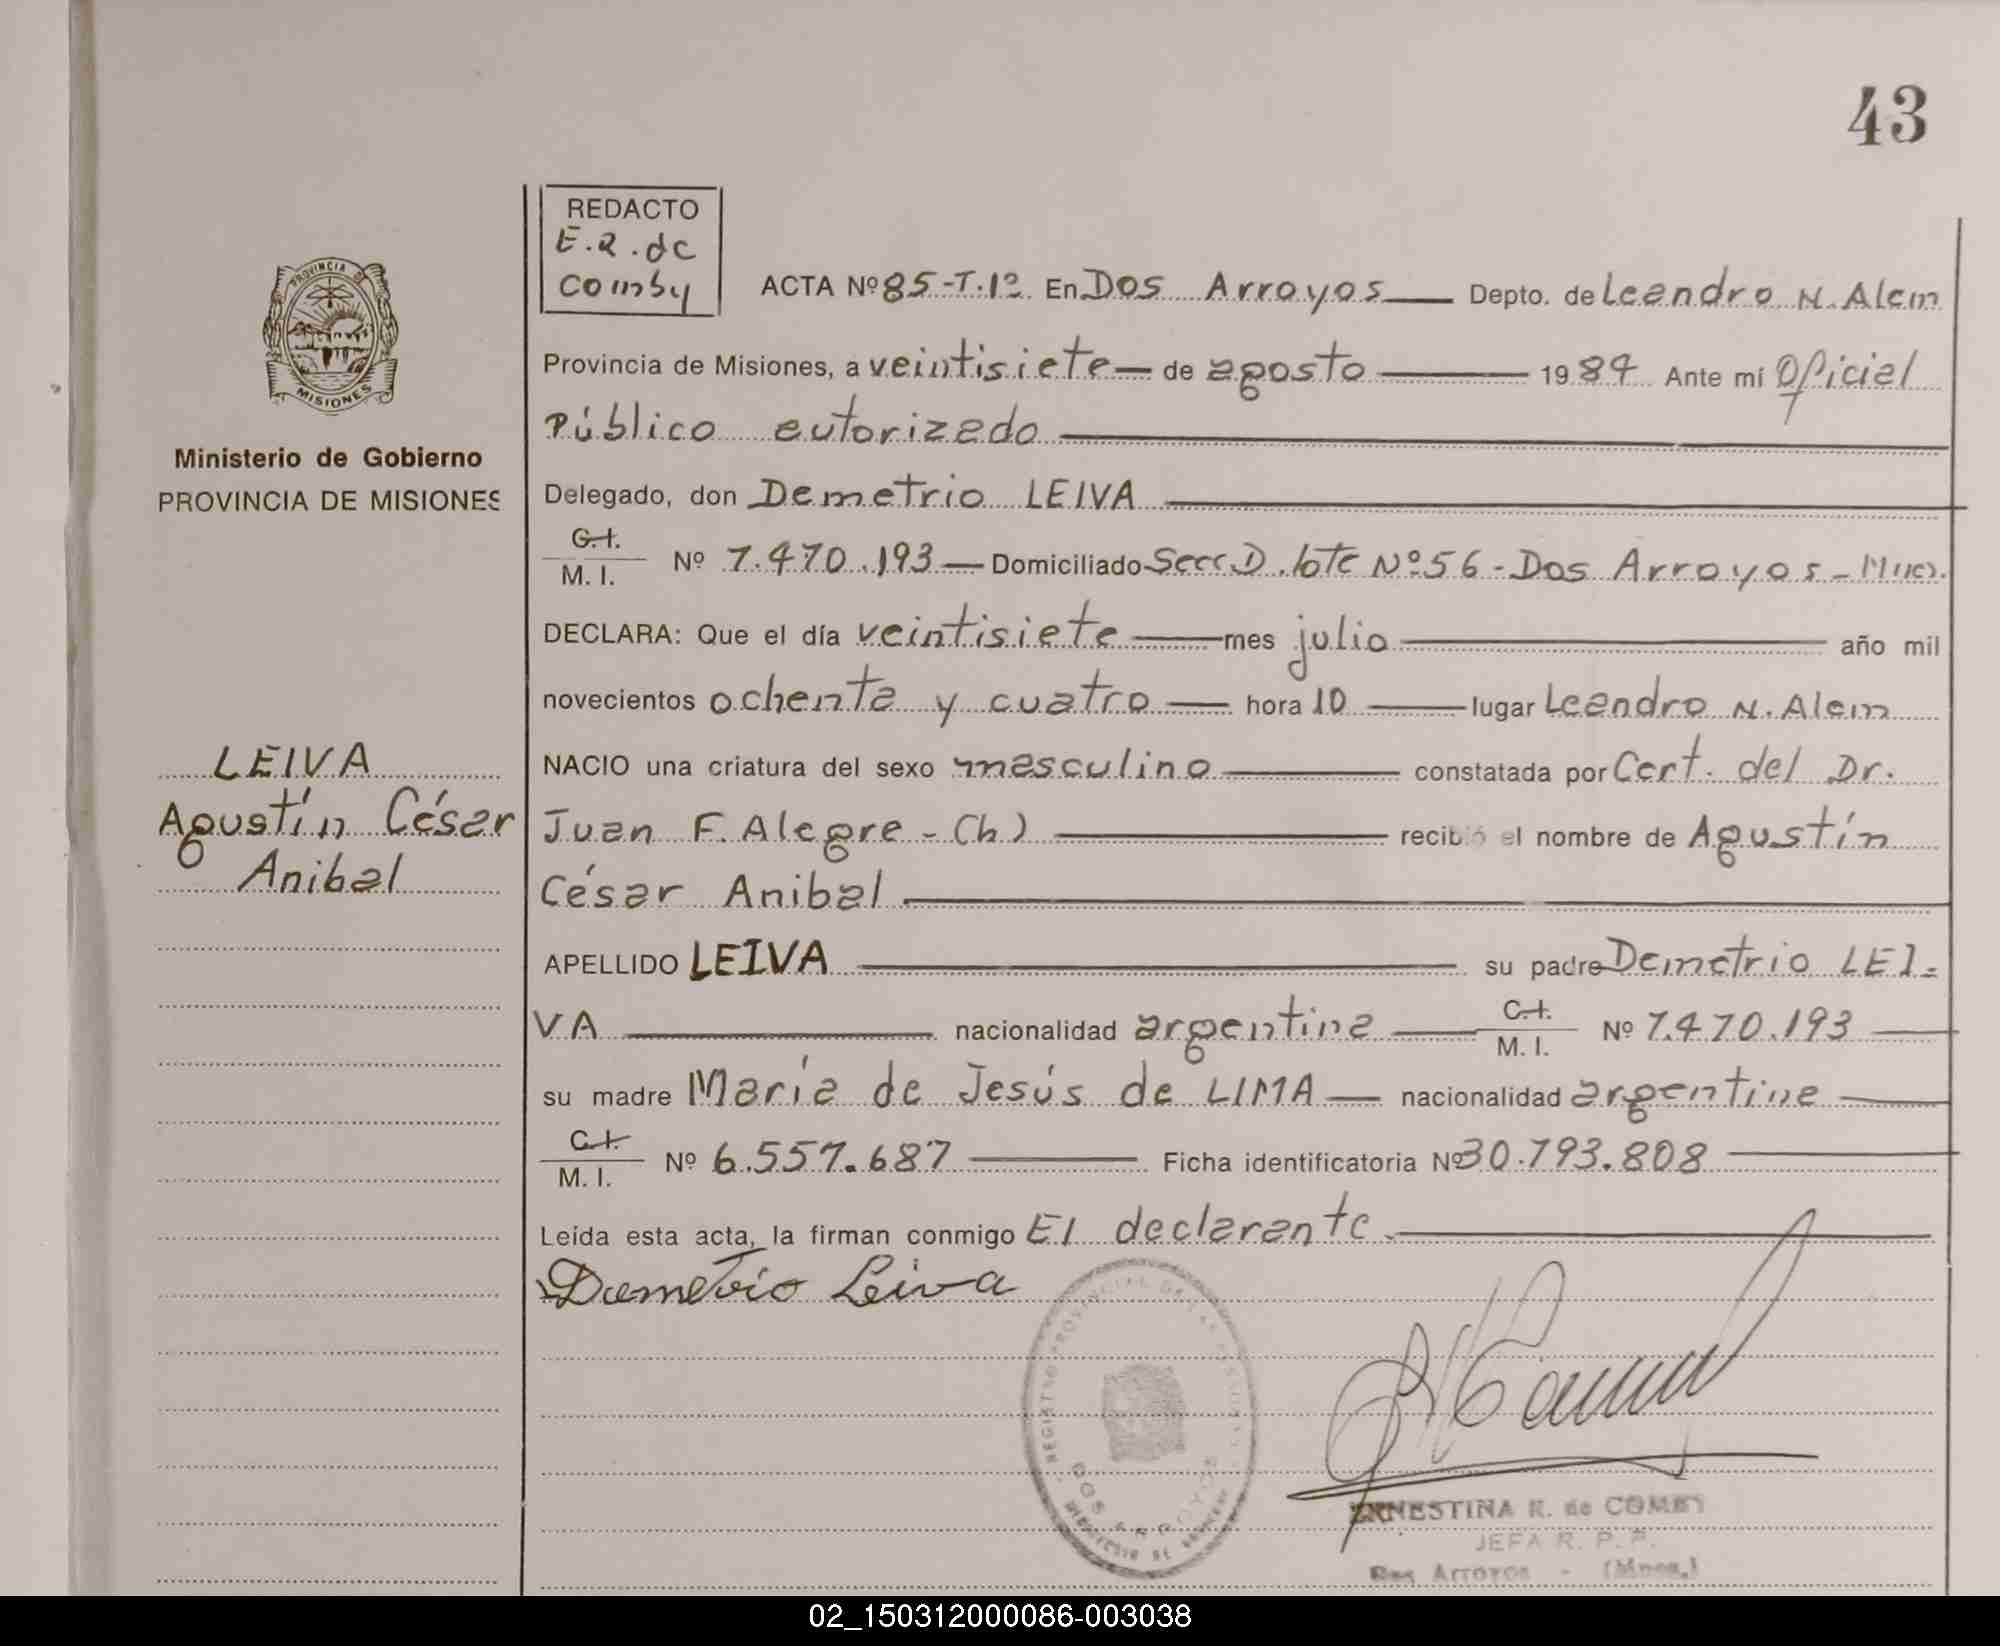 43
REDACTO
E.R.de
Comby
ACTA Nº 85-T.1º En Dos Arroyos Depto. de Leandro N. Alem
PROVINCIA DE
MISIONES
Provincia de Misiones, a veintisiete de agosto 1984 Ante mí Oficial
Público autorizado
Ministerio de Gobierno
PROVINCIA DE MISIONES
Delegado, don Demetrio LEIVA
C.I.
M. I. Nº 7.470.193 Domiciliado Secc. D. lote Nº 56 - Dos Arroyos -
DECLARA: Que el día veintisiete mes julio año mil
novecientos ochenta y cuatro hora 10 lugar Leandro N. Alem
NACIO una criatura del sexo masculino constatada por Cert. del Dr.
Juan F. Alegre - (h) recibió el nombre de Agustín
César Anibal
LEIVA
Agustín César
Anibal
APELLIDO LEIVA su padre Demetrio LEI-
VA nacionalidad argentina C.I.
M. I. Nº 7.470.193
su madre María de Jesús de LIMA nacionalidad argentina
C.I.
M. I. Nº 6.557.687 Ficha identificatoria Nº 30.793.808
Leída esta acta, la firman conmigo El declarante.
Demetrio Leiva
REGISTRO PROVINCIAL DE LAS PERSONAS
DOS ARROYOS
MINISTERIO DE GOBIERNO
ERNESTINA R. de COMBY
JEFA R. P. P.
Dos Arroyos - (Mnes.)
02_150312000086-003038